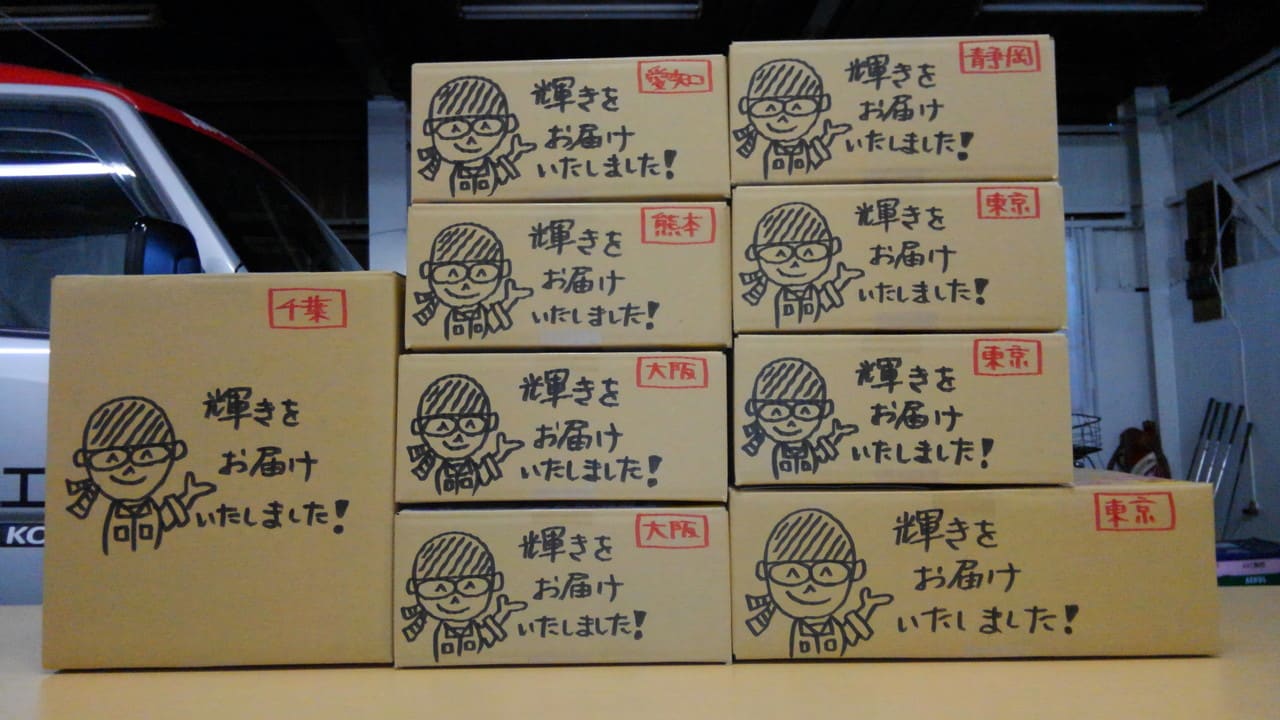 千葉
輝きを
お届け
いたしました!
愛知
輝きを
お届け
いたしました!
熊本
輝きを
お届け
いたしました!
大阪
輝きを
お届け
いたしました!
大阪
輝きを
お届け
いたしました!
静岡
輝きを
お届け
いたしました!
東京
輝きを
お届け
いたしました!
東京
輝きを
お届け
いたしました!
東京
輝きを
お届け
いたしました!
工
KO